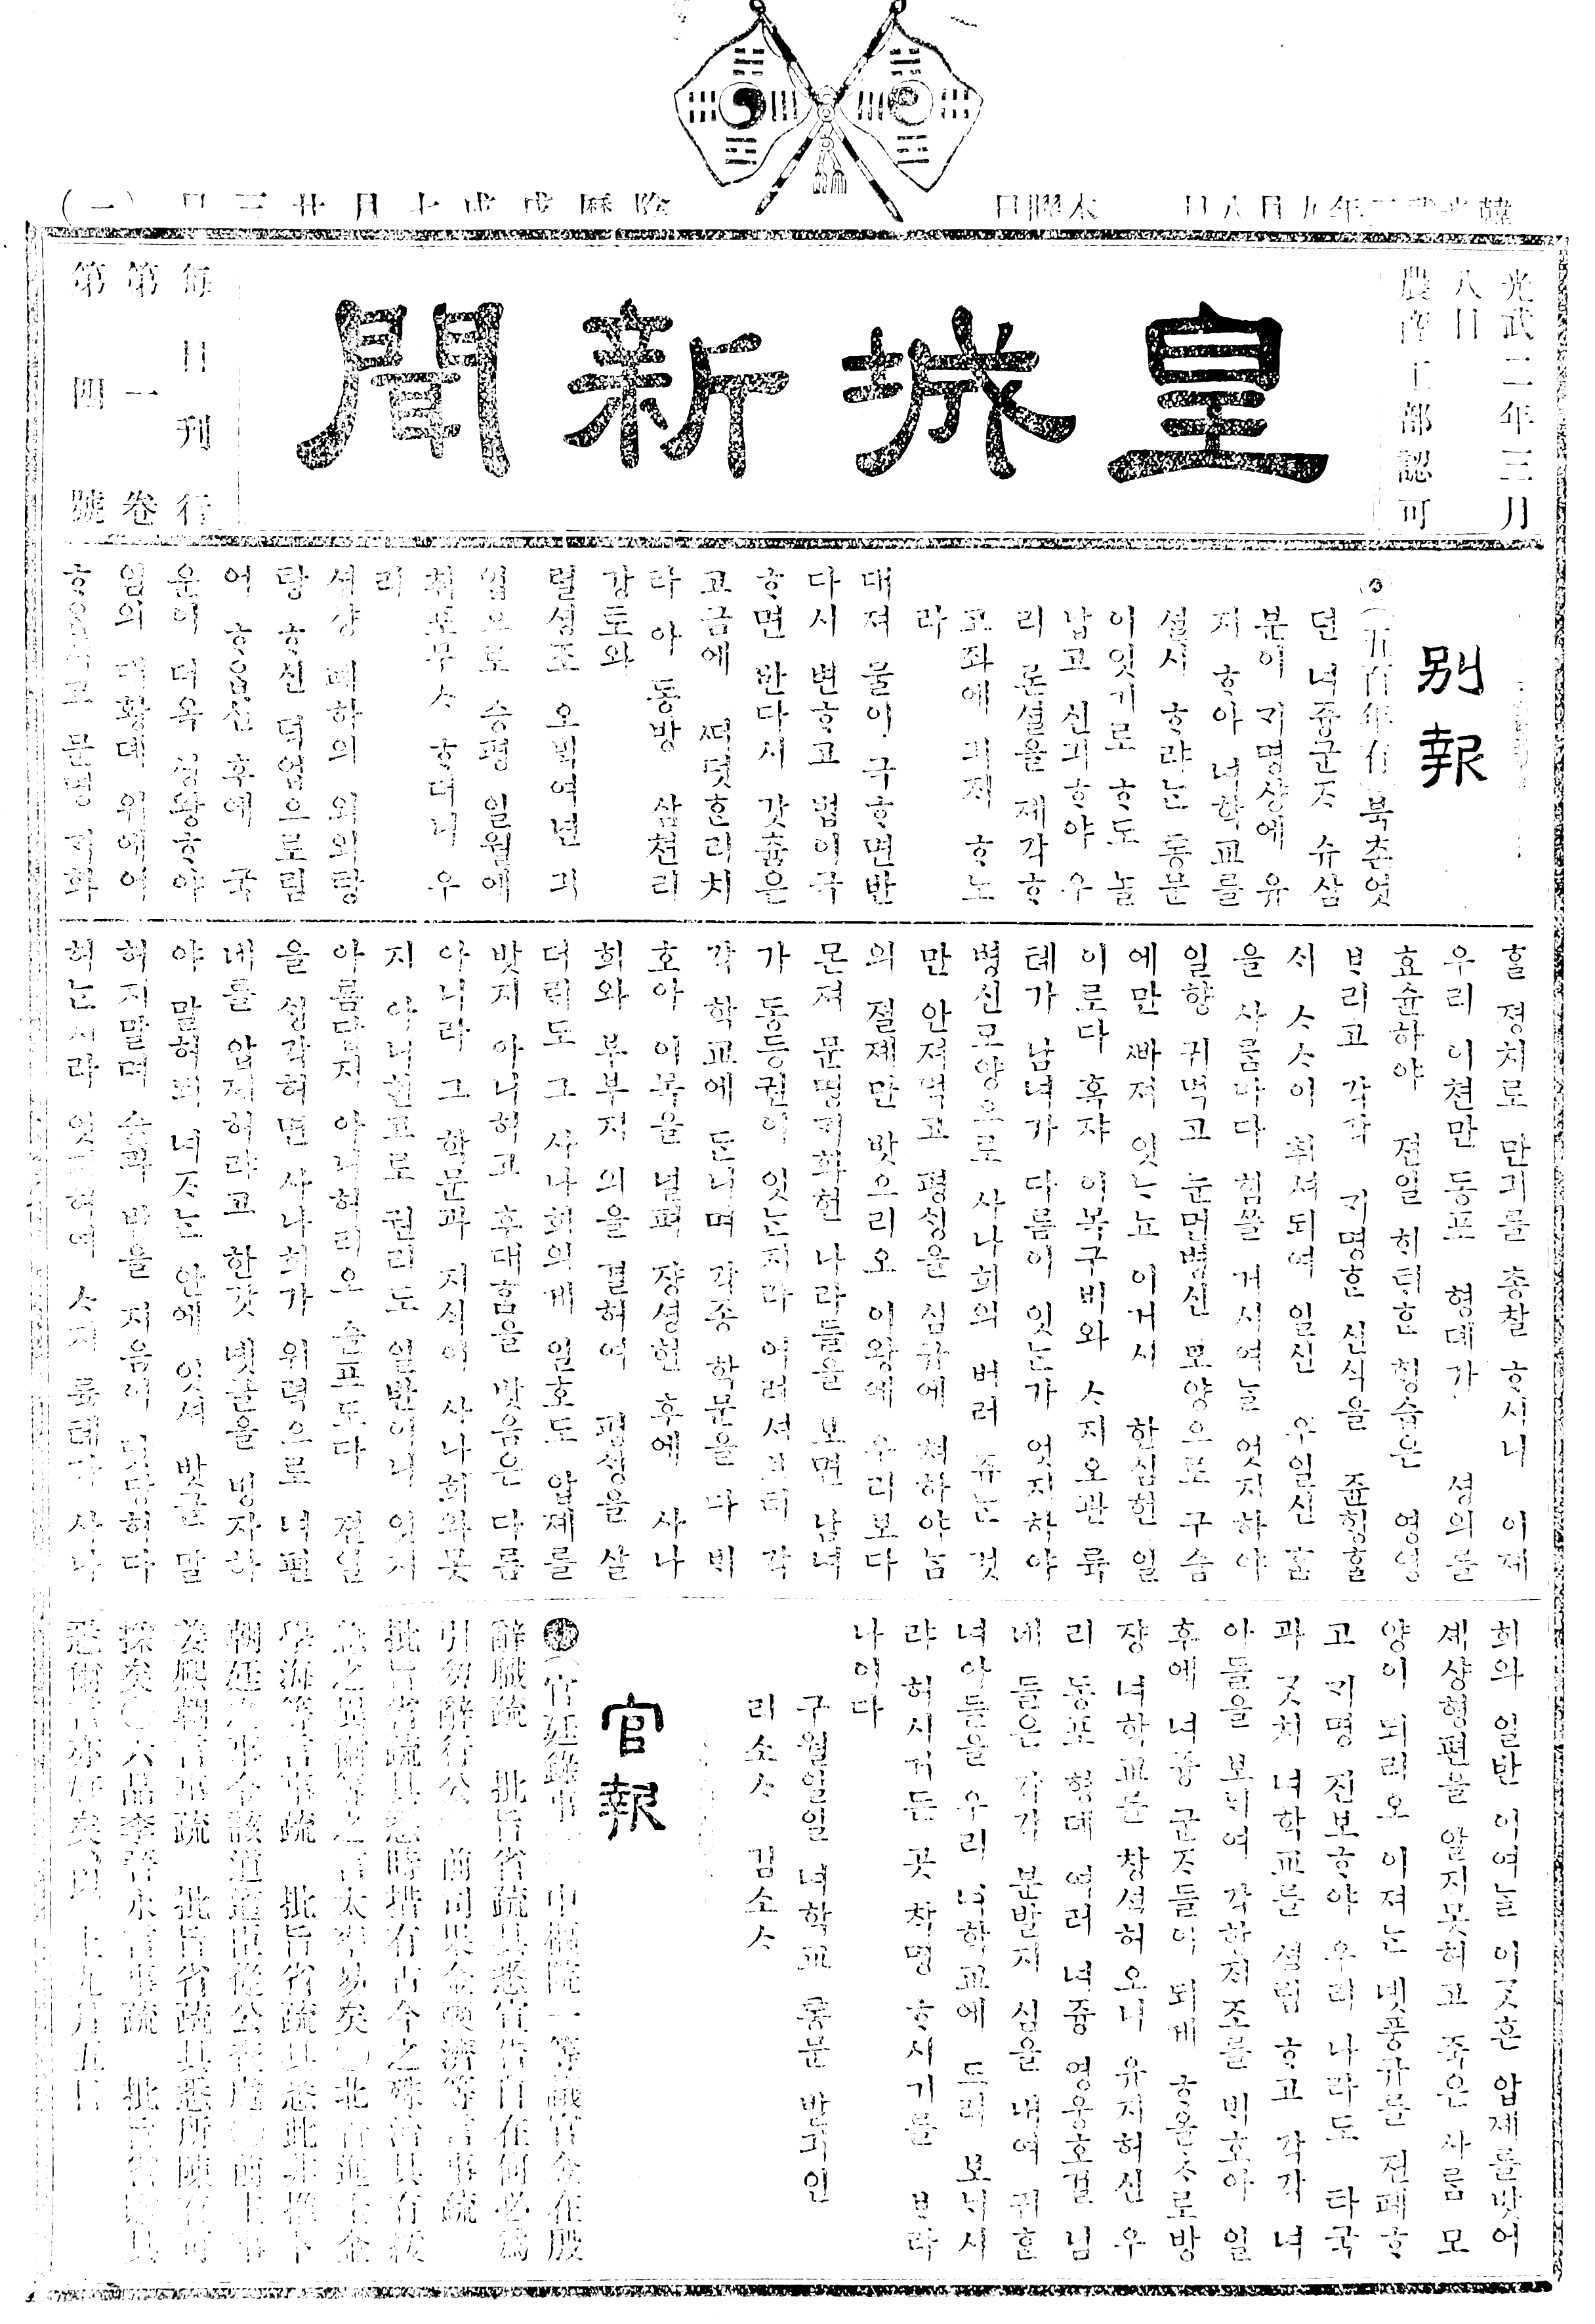 皇城新聞
光武二年三月
八日
農商工部認可
每日刊行
第一卷
第四號
別報
(五百年有)북촌엇
던 녀즁군ᄌ 슈삼
분이 ᄀᆡ명샹에 유
지 ᄒᆞ야 녀학교를
셜시 ᄒᆞ랴는 통문
이잇기로 ᄒᆞ도 놀
납고 신긔ᄒᆞ야 우
리 론셜을 제각ᄒᆞ
고좌에 긔ᄌᆡ ᄒᆞ노
라
대져 물이 극ᄒᆞ면반
다시 변ᄒᆞ고 법이극
ᄒᆞ면 반다시 갓츔은
고금에 ᄯᅥᆺᄯᅥᆺᄒᆞᆫ리치
라 아 동방 삼쳔리
강토와
렬셩조 오ᄇᆡᆨ여년 긔
업으로 승평 일월에
취포무ᄉ ᄒᆞ더니 우
리
셩샹 폐하의 외외탕
탕 ᄒᆞ신 덕업으로림
어 ᄒᆞᄋᆞᆸ신 후에 국
운이 더욱 셩왕ᄒᆞ야
임의 대황뎨 위에어
ᄒᆞᄋᆞᆸ시고 문명 ᄀᆡ화
ᄒᆞᆯ 졍치로 만긔를 총찰 ᄒᆞ시니 이제
우리 이쳔만 동포 형뎨가 셩의를
효슌하야 젼일 ᄒᆡᄐᆡᄒᆞᆫ ᄒᆡᆼ습은 영영
ᄇᆞ리고 각각 ᄀᆡ명ᄒᆞᆫ 신식을 쥰ᄒᆡᆼᄒᆞᆯ
ᄉᆡ ᄉᄉ이 취셔되여 일신 우일신 ᄒᆞᆷ
을 사ᄅᆞᆷ마다 힘쓸 거시여늘 엇지하야
일향 귀먹고 눈먼병신 모양으로 구습
에만 ᄲᅡ져 잇ᄂᆞ뇨 이거시 한심헌 일
이로다 혹쟈 이목구비와 ᄉ지오관 륙
톄가 남녀가 다름이 잇ᄂᆞᆫ가 엇지하야
병신모양으로 사나희의 버러 쥬ᄂᆞᆫ 것
만 안져먹고 평ᄉᆡᆼ을 심규에 쳐하야ᄂᆞᆷ
의 졀졔만 밧으리오 이왕에 우리보다
몬져 문명ᄀᆡ화헌 나라들을 보면 남녀
가 동등권이 잇ᄂᆞᆫ지라 어려셔브터 각
각 학교에 ᄃᆞᆫ니며 각죵 학문을 다 ᄇᆡ
호아 이목을 널펴 쟝셩헌 후에 사나
희와 부부지 의을 결허여 평ᄉᆡᆼ을 살
더ᄅᆡ도 그 사나희의게 일호도 압졔를
밧지 아니허고 후대함을 밧음은 다름
아니라 그 학문과 지식이 사나희와못
지 아니헌고로 권리도 일반이니 엇지
아름답지 아니허리오 슬프도다 젼일
을 ᄉᆡᆼ각허면 사나희가 위력으로 녀편
네를 압졔허랴고 한갓 녯글을 빙자하
야 말허되 녀ᄌᄂᆞᆫ 안에 잇셔 밧글 말
허지말며 술과 밥을 지음이 맛당허다
허ᄂᆞᆫ지라 엇지허여 ᄉ지 륙톄가 사나
희와 일반 이여늘 이ᄀᆞᆺᄒᆞᆫ 압졔를밧어
셰샹형편을 알지못허고 죽은 사ᄅᆞᆷ 모
양이 되리오 이져ᄂᆞᆫ 녯풍규를 젼폐ᄒᆞ
고 ᄀᆡ명 진보ᄒᆞ야 우리 나라도 타국
과 ᄀᆞᆺ치 녀학교를 셜립 ᄒᆞ고 각각 녀
아들을 보ᄂᆡ여 각항ᄌᆡ조를 ᄇᆡ호아 일
후에 녀즁 군ᄌ들이 되게 ᄒᆞ올ᄎ로방
쟝 녀학교를 창셜허 오니 유지허신 우
리 동포 형뎨 여러 녀즁 영웅호걸 님
네 들은 각각 분발지 심을 내여 귀ᄒᆞᆫ
녀아들을 우리 녀학교에 드려 보ᄂᆡ시
랴 허시거든 곳 착명 ᄒᆞ시기를 ᄇᆞ라
나이다
구월일일 녀학교 통문 발긔인
리소ᄉ 김소ᄉ
官報
(官廷錄事) 中樞院一等議官金在殷
辭職疏 批旨省疏具悉宜告自在何必爲
引勿辭行公 前司果金奭濟等言事疏
批旨省疏具悉時措有古今之殊治具有緩
急之異爾等之言太率易矣○北靑進士金
學海等言事疏 批旨省疏具悉此非推下
姜熙朝言事疏 批旨省疏具悉所陳有可
採矣○六品李
悉爾言亦好矣 以上九月五日